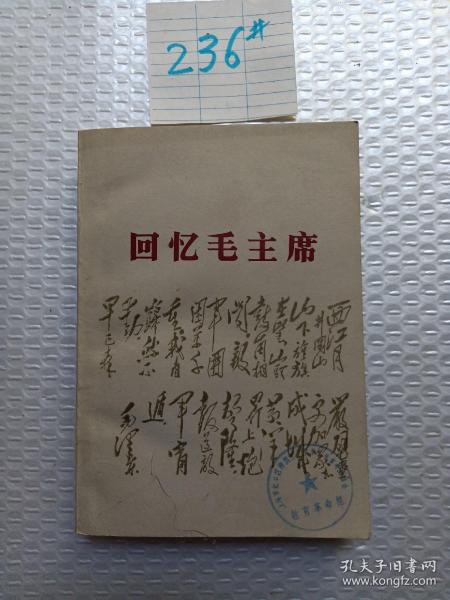 236#
回忆毛主席
西江月
井冈山
山下旌旗
在望山头
鼓角相
闻敌
军围
困万千
重我自
岿然不
动
早已森
严壁垒
更加众志
成城
黄洋
界上炮
声隆
报道敌
军宵
遁
毛泽东
教育革命组
孔夫子旧书网
www.kongfz.com